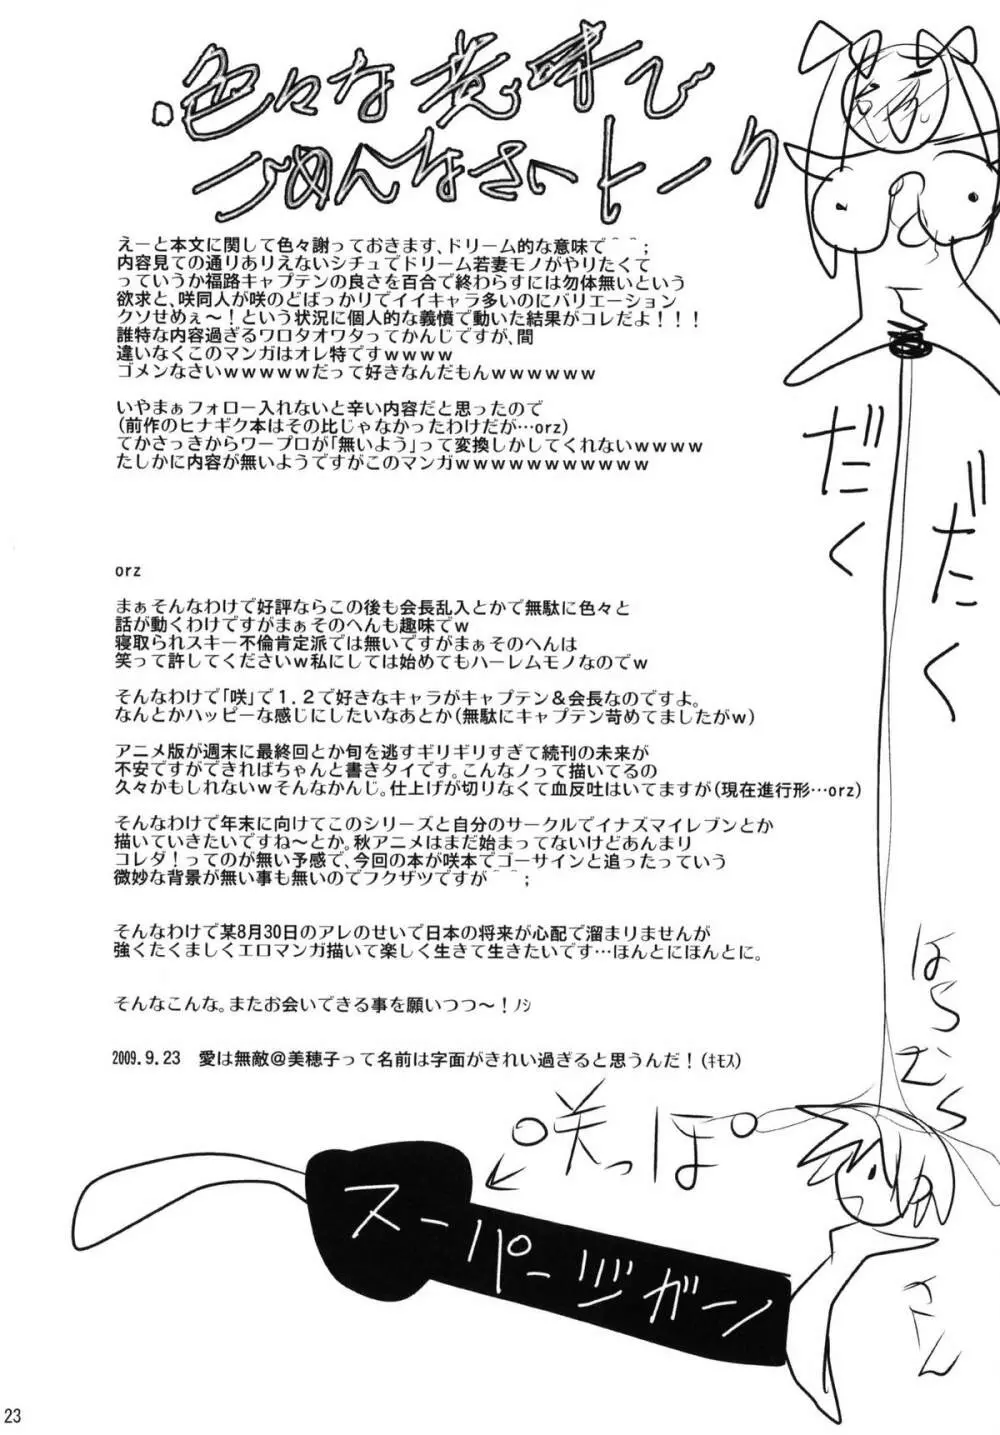 色々な意味で
ごめんなさいトーク
えーと本文に関して色々謝っておきます、ドリーム的な意味で＾＾；
内容見ての通りありえないシチュでドリーム若妻モノがやりたくて
っていうか福路キャプテンの良さを百合で終わらすには勿体無いという
欲求と、咲同人が咲のどばっかりでイイキャラ多いのにバリエーション
クソせめぇ～！という状況に個人的な義憤で動いた結果がコレだよ！！！
誰特な内容過ぎるワロタオワタってかんじですが、間
違いなくこのマンガはオレ特ですｗｗｗｗ
ゴメンなさいｗｗｗｗｗだって好きなんだもんｗｗｗｗｗｗ
いやまぁフォロー入れないと辛い内容だと思ったので
(前作のヒナギク本はその比じゃなかったわけだが…orz)
てかさっきからワープロが「無いよう」って変換しかしてくれないｗｗｗｗ
たしかに内容が無いようですがこのマンガｗｗｗｗｗｗｗｗｗｗｗ
orz
まぁそんなわけで好評ならこの後も会長乱入とかで無駄に色々と
話が動くわけですがまぁそのへんも趣味でｗ
寝取られスキー不倫肯定派では無いですがまぁそのへんは
笑って許してくださいｗ私にしては始めてもハーレムモノなのでｗ
そんなわけで「咲」で１．２で好きなキャラがキャプテン＆会長なのですよ。
なんとかハッピーな感じにしたいなあとか(無駄にキャプテン苛めてましたがｗ)
アニメ版が週末に最終回とか旬を逃すギリギリすぎて続刊の未来が
不安ですができればちゃんと書きタイです。こんなノって描いてるの
久々かもしれないｗそんなかんじ。仕上げが切りなくて血反吐はいてますが(現在進行形…orz)
そんなわけで年末に向けてこのシリーズと自分のサークルでイナズマイレブンとか
描いていきたいですね～とか。秋アニメはまだ始まってないけどあんまり
コレダ！ってのが無い予感で、今回の本が咲本でゴーサインと追ったっていう
微妙な背景が無い事も無いのでフクザツですが＾＾；
そんなわけで某8月30日のアレのせいで日本の将来が心配で溜まりませんが
強くたくましくエロマンガ描いて楽しく生きて生きたいです…ほんとにほんとに。
そんなこんな。またお会いできる事を願いつつ～！ﾉｼ
2009.9.23　愛は無敵＠美穂子って名前は字面がきれい過ぎると思うんだ！(ｷﾓｽ)
だく
だく
はらむら
さん
咲っぽ
スーパージガーン
23